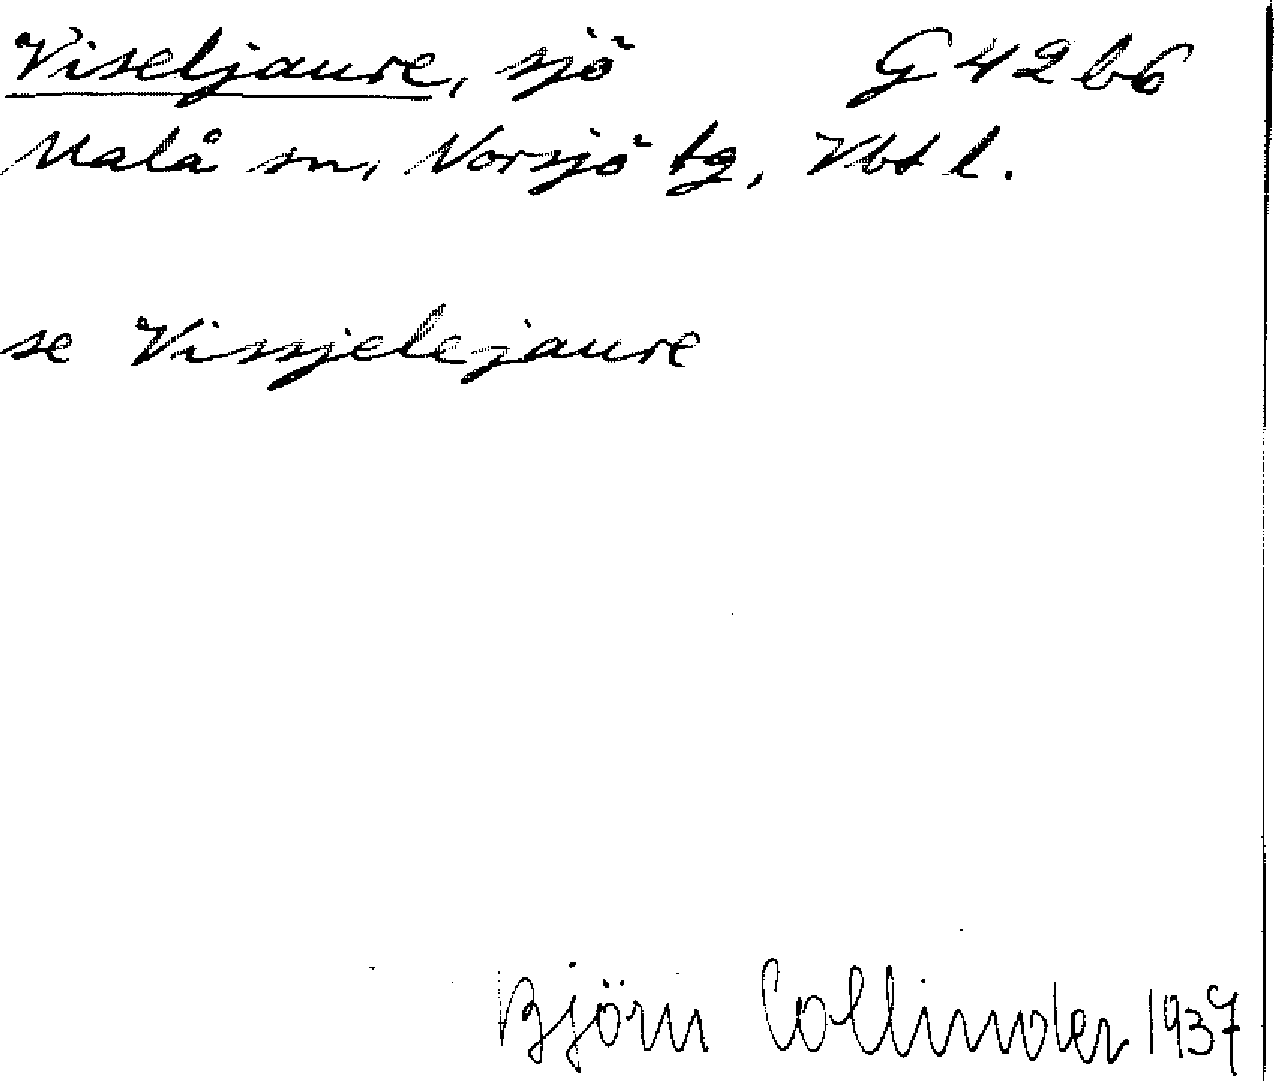 Viseljaure, sjö G 42 b6
Malå sn, Norsjö tg, Vbt l.
se Vissjelejaure
Björn Collinder 1937